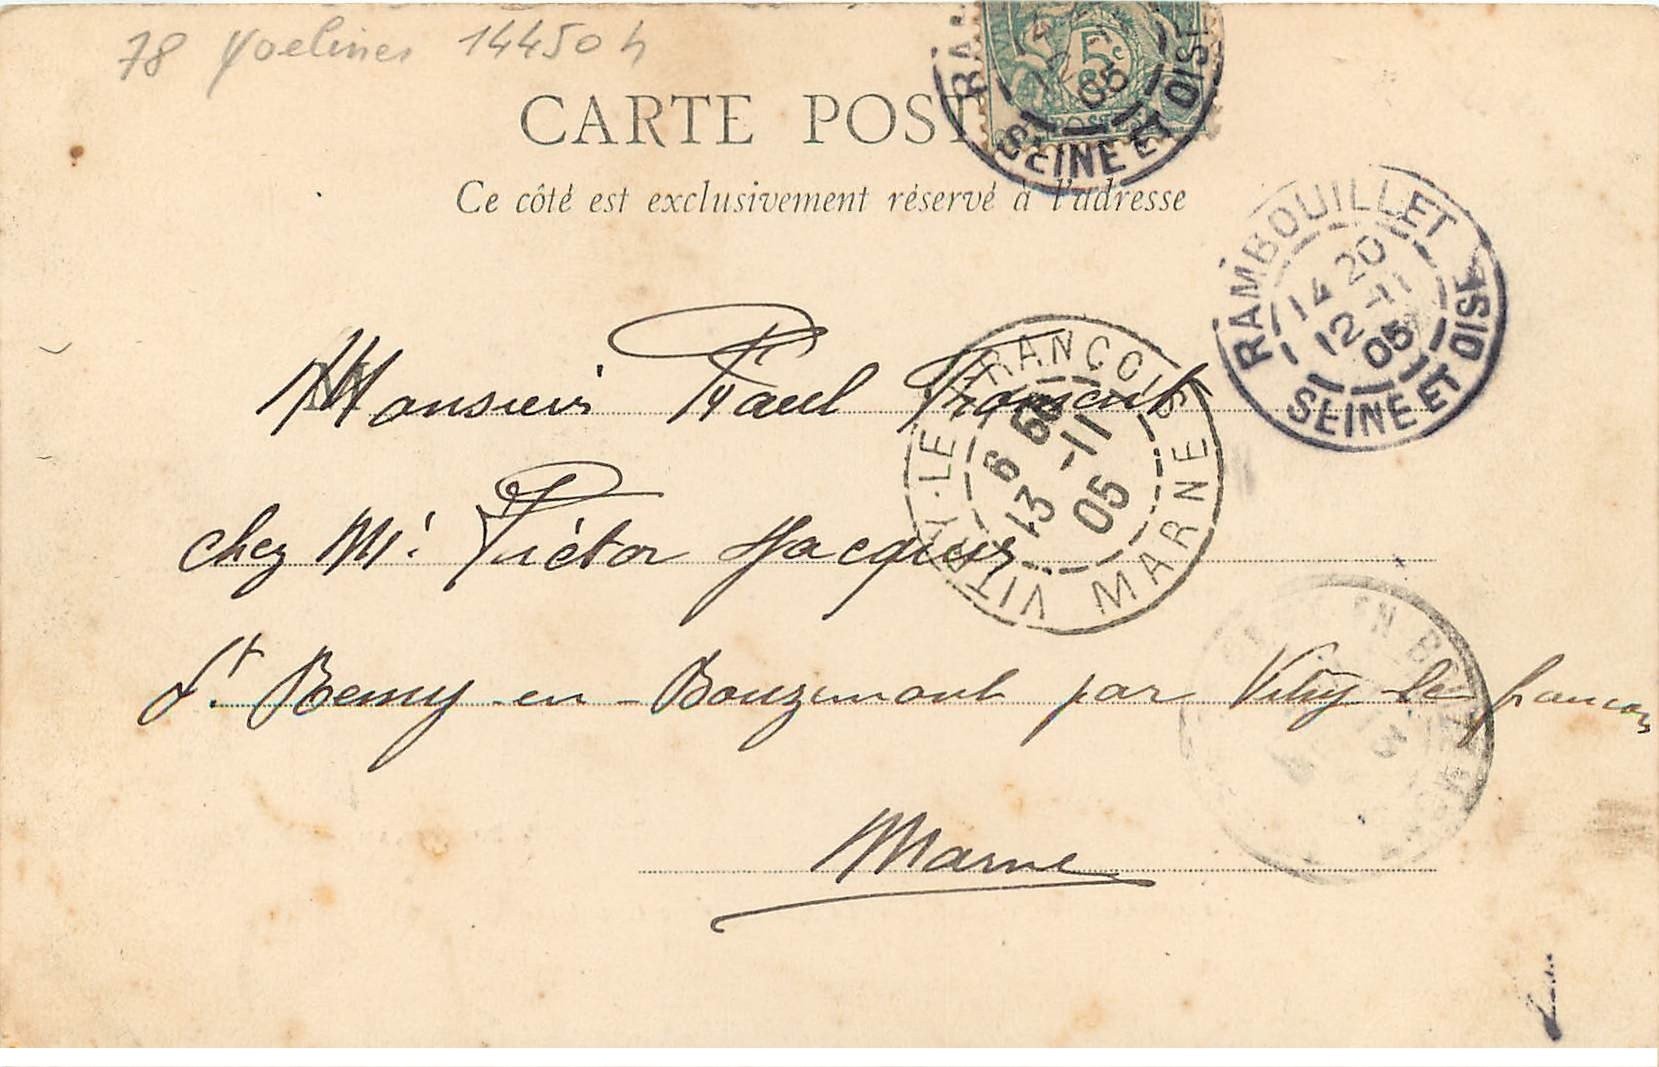 78 Yvelines 14450 h
CARTE POST
Ce côté est exclusivement réservé à l'adresse
5c
POSTES
RAM
12
05
SEINE ET OISE
RAMBOUILLET
14 20
12 -11
05
SEINE ET OISE
Monsieur Paul Froment
VITRY-LE-FRANÇOIS
6
13 -11
05
MARNE
chez Mr. Victor Jacques
St. Remy-en-Bouzemont par Vitry le françois
EN BOUZEMONT
Marne